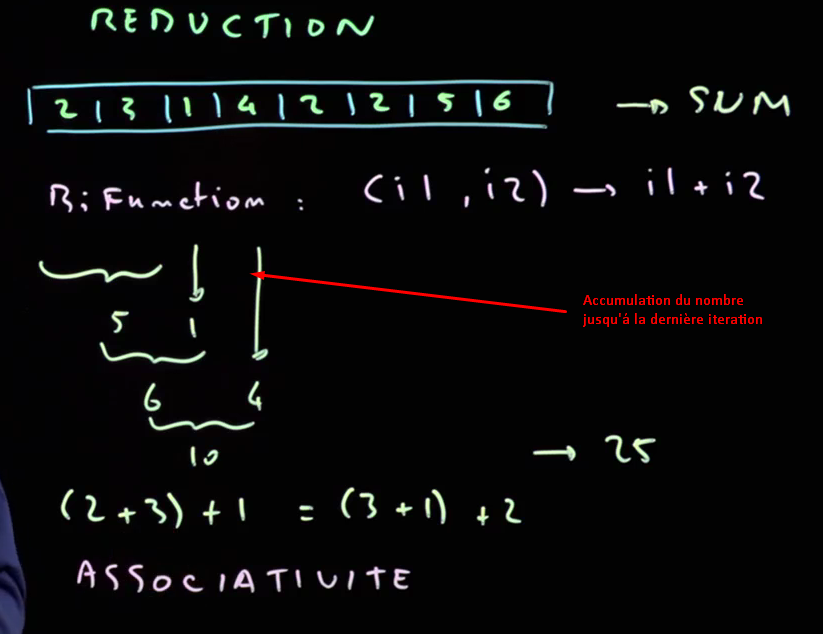 REDUCTION
2 | 3 | 1 | 4 | 2 | 2 | 5 | 6 → SUM
BiFunction : (i1, i2) → i1 + i2
Accumulation du nombre
jusqu'à la dernière iteration
5 1
6 4
10
→ 25
(2+3)+1 = (3+1)+2
ASSOCIATIVITE